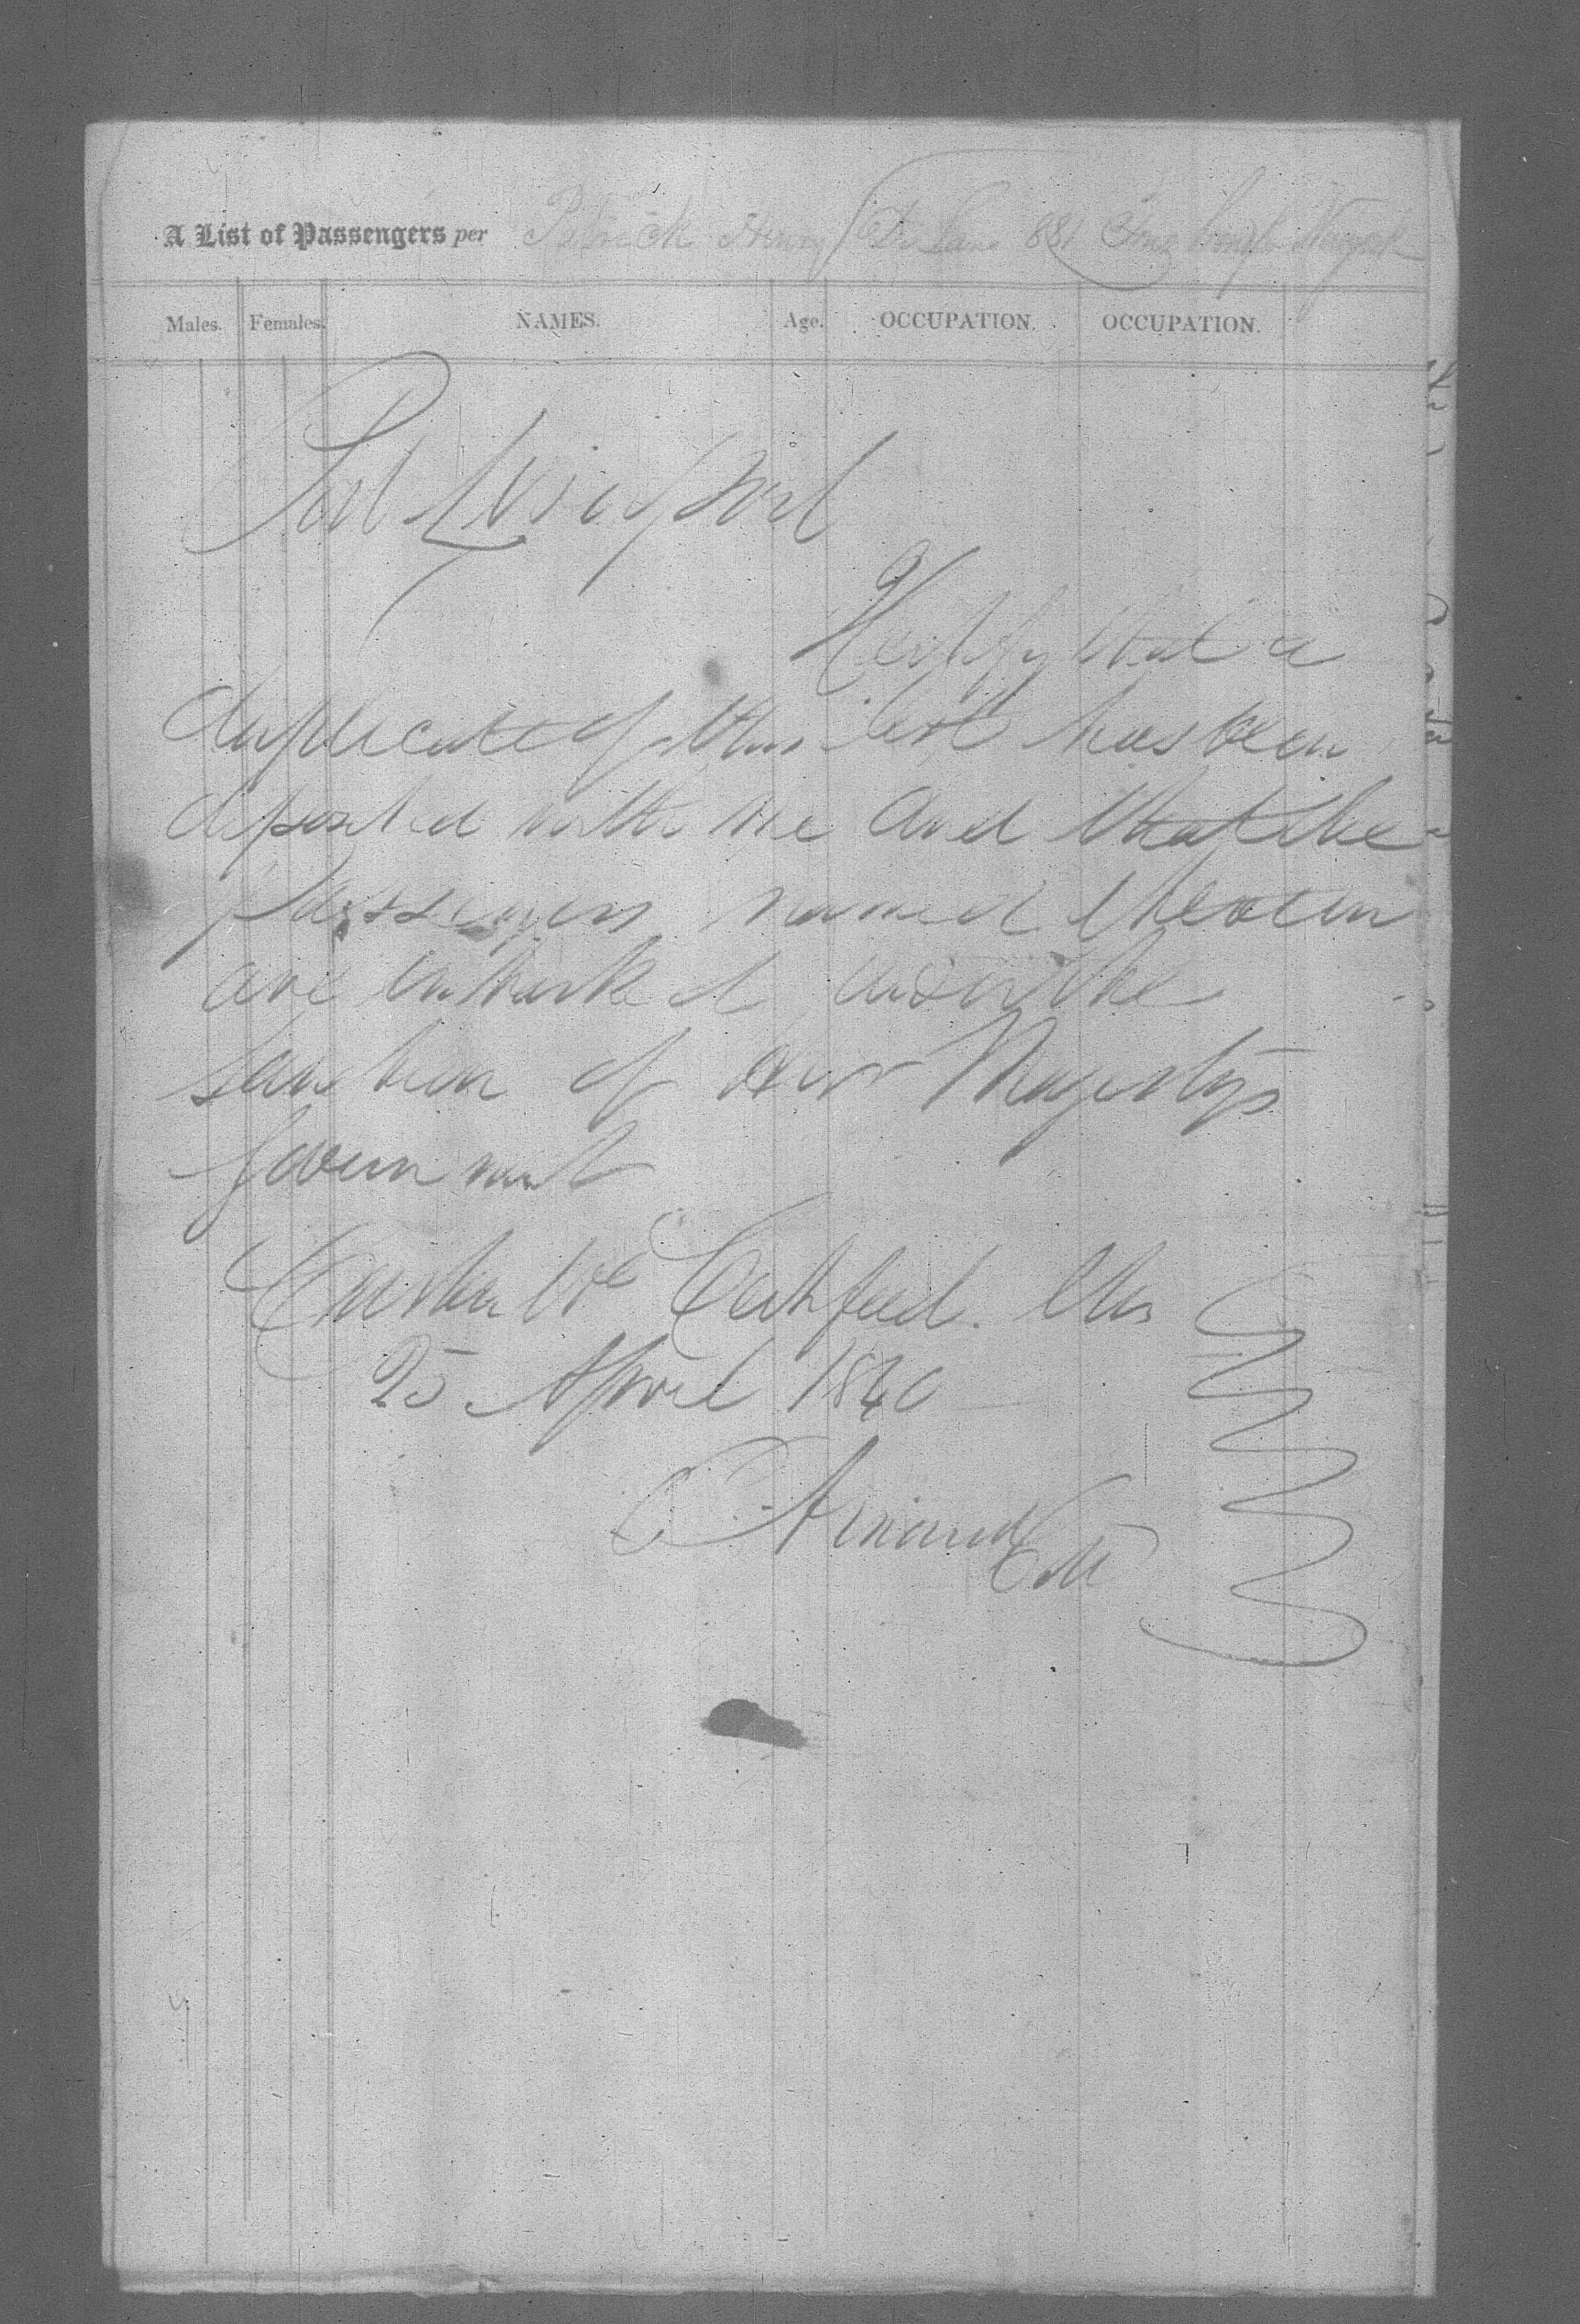 A List of Passengers per Patrick Henry Delano 881 Tons bound for Newyork
Males. Females. NAMES. Age. OCCUPATION. OCCUPATION.
Port Liverpool
I Certify that a
duplicate of this list has been
deposited with me and that the
passengers named therein
are embarked under the
sanction of Her Majestys
Government
Custom Ho Certified this
25 April 1840